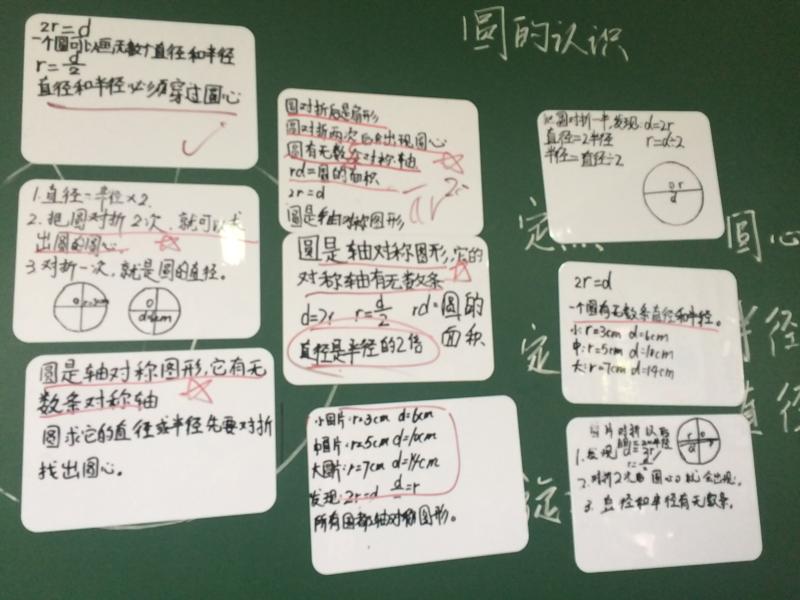 圆的认识
2r=d
一个圆可以画无数个直径和半径
r=d/2
直径和半径必须穿过圆心
1.直径=半径×2.
2.把圆对折2次,就可以求
出圆的圆心。
3对折一次,就是圆的直径。
圆是轴对称图形,它有无
数条对称轴
圆求它的直径或半径先要对折
找出圆心。
圆对折后是扇形
圆对折两次后会出现圆心
圆有无数条对称轴
rd=圆的面积
2r=d
圆是轴对称图形
圆是轴对称图形,它的
对称轴有无数条
d=2r r=d/2 rd=圆的
面积
直径是半径的2倍
小圆片:r=3cm d=6cm
中圆片:r=5cm d=10cm
大圆片:r=7cm d=14cm
发现:2r=d
所有圆都轴对称图形。
把圆对折一半,发现:d=2r
直径=2半径 r=d÷2
半径=直径÷2
r
d
定
圆心
2r=d
一个圆有无数条直径和半径。
小:r=3cm d=6cm
中:r=5cm d=10cm
大:r=7cm d=14cm
定
半径
直径
片对折以后
1.发现
2.对折2次后圆心就会出现。
3.直径和半径有无数条。